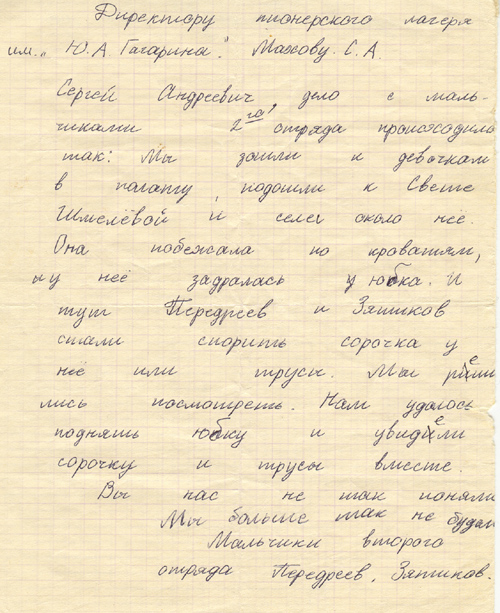 Директору пионерского лагеря
им. „Ю. А. Гагарина". Махову. С. А.
Сергей Андреевич, дело с маль-
чиками 2го отряда происходило
так: Мы зошли к девочкам
в полату, подошли к Свете
Шмелёвой и селеи около неё.
Она побежала по кроватям,
и у неё задралась у юбка. И
тут Передреев и Зятиков
стали спорить сорочка у
неё или трусы. Мы реши
лись посмотреть. Нам удалось
поднять юбку и увидели
сорочку и трусы вместе.
Вы нас не так поняли
Мы больше так не будем
Мальчики второго
отряда Передреев, Зятиков.